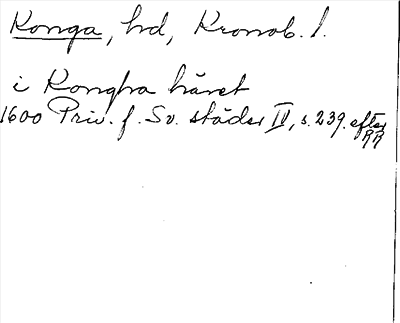 Konga, hd, Kronob. l.
i Kongha häret
1600 Priv. f. Sv. städer IV, s. 239. efter
RR